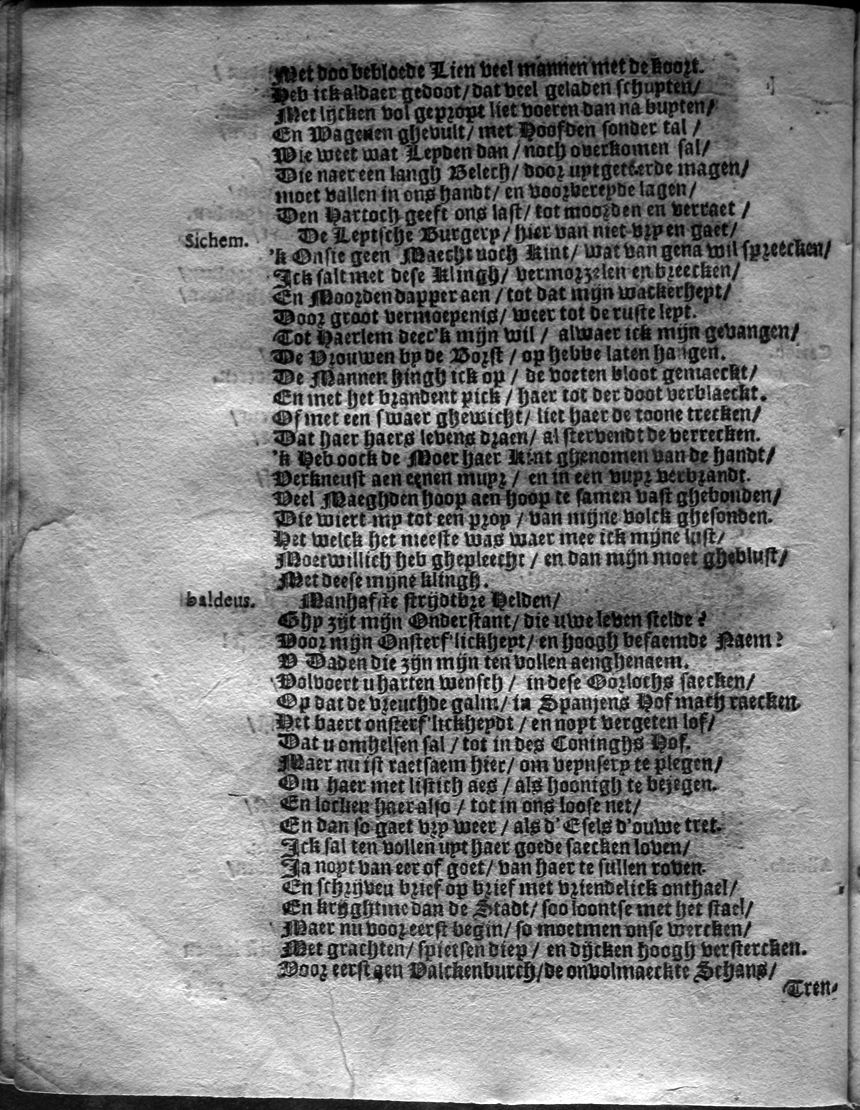 Met doo bebloede Lien veel mannen met de koort.
Heb ick aldaer gedoot/ dat veel geladen schuyten/
Met lijcken vol gepropt liet voeren dan na buyten/
En Wagenen ghevult/ met Hoofden sonder tal/
Wie weet wat Leyden dan/ noch overkomen sal/
Die naer een langh Belech/ door uytgeteerde magen/
moet vallen in ons handt/ en voorbereyde lagen/
Den Hartoch geeft ons last/ tot moorden en verraet/
Sichem. De Leytsche Burgery/ hier van niet vry en gaet/
'k Onsie geen Maecht noch Kint/ wat van gena wil spreecken/
Ick sal met dese Klingh/ vermorzelen en breecken/
En Moorden dapper aen/ tot dat mijn wackerheyt/
Door groot vermoeyenis/ weer tot de ruste leyt.
Tot Haerlem deec'k mijn wil/ alwaer ick mijn gevangen/
De Vrouwen by de Borst/ op hebbe laten hangen.
De Mannen hingh ick op/ de voeten bloot gemaeckt/
En met het brandent pick/ haer tot der doot verblaeckt.
Of met een swaer ghewicht/ liet haer de toone trecken/
Dat haer haers levens draen/ al stervendt de verrecken.
'k Heb oock de Moer haer Kint ghenomen van de handt/
Verkneust aen eenen muyr/ en in een vuyr verbrandt.
Veel Maeghden hoop aen hoop te samen vast ghebonden/
Die wiert my tot een prop/ van mijne volck ghesonden.
Het welck het meeste was waer mee ick mijne lust/
Moetwillich heb ghepleecht/ en dan mijn moet gheblust/
Met deese mijne klingh.
baldeus. Manhafste strijdtbre Helden/
Ghy zijt mijn Onderstant/ die uwe leven stelde?
Voor mijn Onsterf'lickheyt/ en hoogh befaemde Naem?
V Daden die zijn mijn ten vollen aenghenaem.
Volvoert u harten wensch/ in dese Oorlochs saecken/
Op dat de vreuchde galm/ in Spanjens Hof mach raecken.
Het baert onsterf'lickheydt/ en noyt vergeten lof/
Dat u omhelsen sal/ tot in des Coninghs Hof.
Maer nu ist raetsaem hier/ om veynsery te plegen/
Om haer met listich aes/ als hoonigh te bejegen.
En locken haer also/ tot in ons loose net/
En dan so gaet vry weer/ als d'Esels d'ouwe tret.
Ick sal ten vollen uyt haer goede saecken loven/
Ja noyt van eer of goet/ van haer te sullen roven.
En schrijven brief op brief met vriendelick onthael/
En krijghtme dan de Stadt/ soo loontse met het stael/
Maer nu voor eerst begin/ so moetmen onse wercken/
Met grachten/ spietsen diep/ en dijcken hoogh verstercken.
Voor eerst aen Valckenburch/ de onvolmaeckte Schans/
Tren-